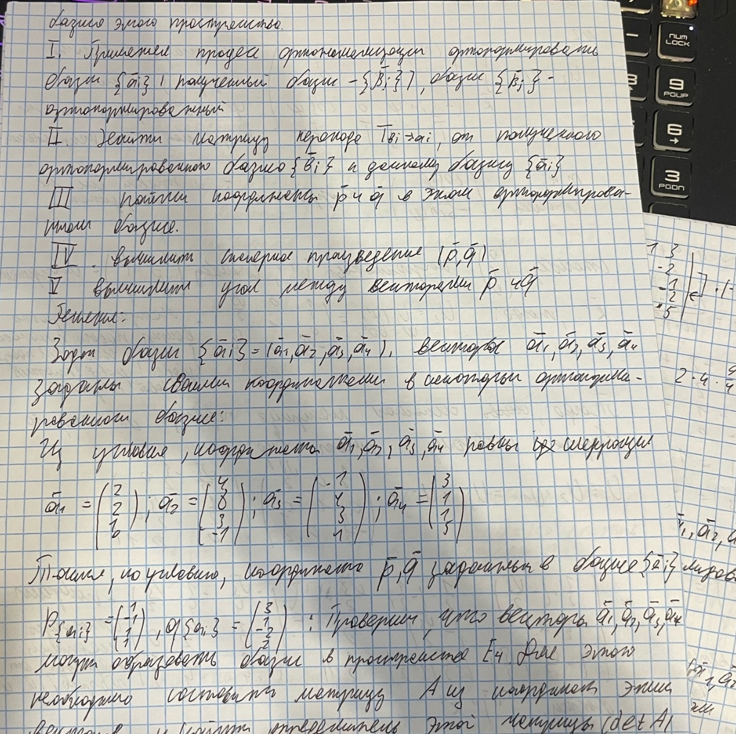 базисе этого пространства.
I. Применяя процесс ортогонализации ортонормировать
базис {āi} (полученный базис -{B̄i}), базис {B̄i} -
ортонормированный
II Найти матрицу перехода Tвi→ai, от полученного
ортонормированного базиса {B̄i} к данному базису {āi}
III найти координаты p̄ и q̄ в этом ортонормирован-
ном базисе.
IV. вычислить скалярное произведение (p̄,q̄)
V вычислить угол между векторами p̄ и q̄
Решение:
Задан базис {āi} = (ā1,ā2,ā3,ā4), векторы ā1,ā2,ā3,ā4
заданы своими координатами в некотором ортонорми-
рованном базисе:
Из условия, координаты ā1,ā2,ā3,ā4 равны
ā1 = (2 2 1 ); ā2 = (4 3 -1); ā3 = (-1 4 3 1); ā4 = (3 1 1 5)
Также, по условию, координаты p̄,q̄ заданы в базисе {āi}
p{ai} = (1 -1 1 1), q{ai} = (3 1 -2 2) : Проверим, что векторы ā1,ā2,ā3,ā4
могут образовать базис в пространстве E4 Для этого
необходимо составить матрицу A из координат этих
векторов и найти определитель этой матрицы (det A)
NUM LOCK
9 PGUP
6 →
3 PGDN
1 3
-2
1
-2
5
2 · 4 ·